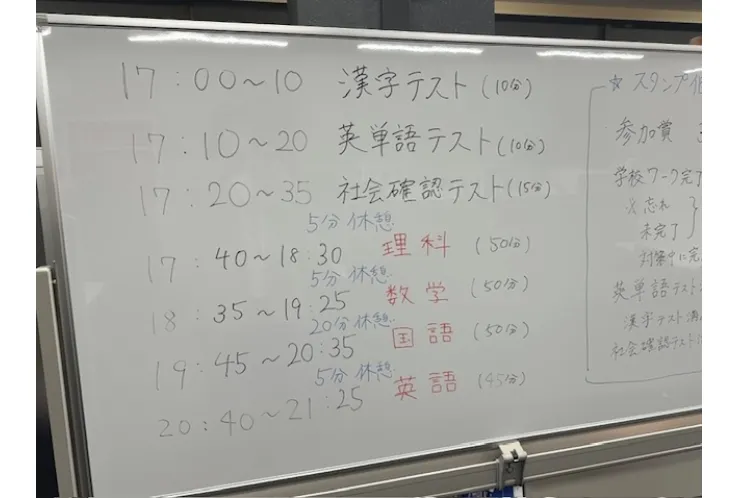 17:00〜10 漢字テスト(10分)
17:10〜20 英単語テスト(10分)
17:20〜35 社会確認テスト(15分)
5分休憩
17:40〜18:30 理科 (50分)
5分休憩
18:35〜19:25 数学 (50分)
20分休憩
19:45〜20:35 国語 (50分)
5分休憩
20:40〜21:25 英語 (45分)
☆ スタンプ
参加賞
学校ワーク完了
忘れ
未完了
対策中に完
英単語テスト
漢字テスト満
社会確認テスト